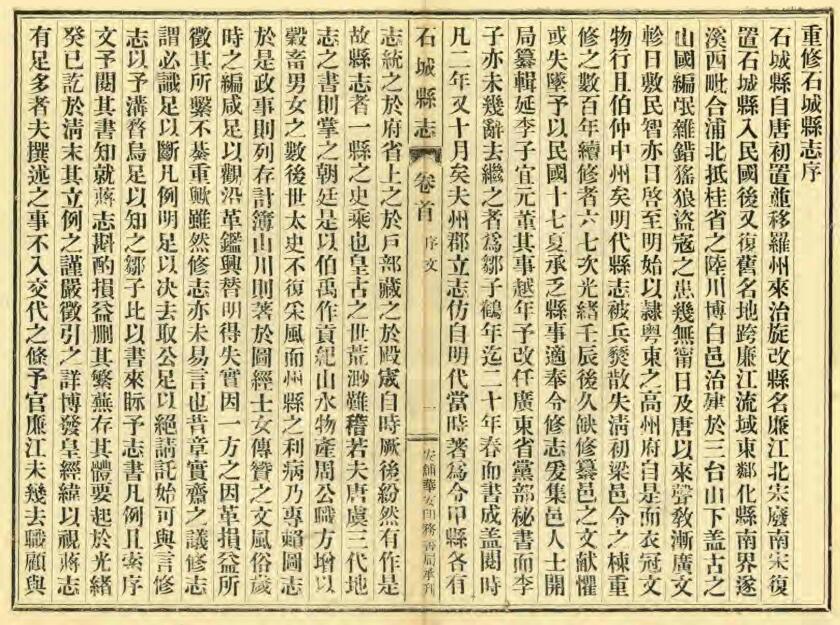 重修石城縣志序
石城縣自唐初置並移羅州來治旋改縣名廉江北宋廢南宋復
置石城縣入民國後又復舊名地跨廉江流域東鄰化縣南界遂
溪西毗合浦北抵桂省之陸川博白邑治肂於三台山下蓋古之
山國編氓雜錯猺狼盜寇之患幾無甯日及唐以來聲敎漸廣文
軫日敷民智亦日啓至明始以隷粵東之高州府自是而衣冠文
物行且伯仲中州矣明代縣志被兵燹散失淸初梁邑令之棟重
修之數百年續修者六七次光緒壬辰後久缺修纂邑之文獻懼
或失墜予以民國十七夏承乏縣事適奉令修志爰集邑人士開
局纂輯延李子宜元董其事越年予改任廣東省黨部秘書而李
子亦未幾辭去繼之者爲鄒子鶴年迄二十年春而書成蓋閱時
凡二年又十月矣夫州郡立志仿自明代當時著爲令甲縣各有
石城縣志 卷首 序文 一
志統之於府省上之於戶部藏之於殿宬自時厥後紛然有作是
故縣志者一縣之史乘也皇古之世荒渺難稽若夫唐虞三代地
志之書則掌之朝廷是以伯禹作貢紀山水物產周公職方增以
穀畜男女之數後世太史不復采風而州縣之利病乃專賴圖志
於是政事則列存計簿山川則著於圖經士女傳贊之文風俗歲
時之編咸足以觀沿革鑑興替明得失實因一方之因革損益所
徵其所繫不綦重歟雖然修志亦未易言也昔章實齋之議修志
謂必識足以斷凡例明足以决去取公足以絕請託始可與言修
志以予溝瞀烏足以知之鄒子比以書來眎予志書凡例且索序
文予閱其書知就蔣志斟酌損益刪其繁蕪存其體要起於光緒
癸巳訖於淸末其立例之謹嚴徵引之詳博發皇經緯以視蔣志
有足多者夫撰述之事不入交代之條予官廉江未幾去職顧與